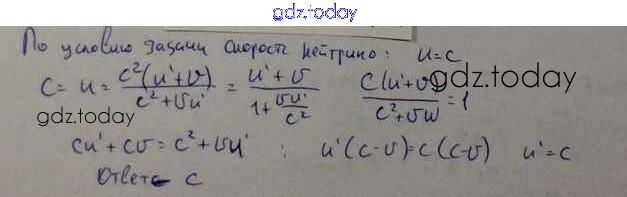 gdz.today
По условию задачи скорость нейтрино: u=c
c = u = c²(u'+v)/(c²+vu') = (u'+v)/(1+vu'/c²) c(u'+v)/(c²+vu') = 1
gdz.today
gdz.today
cu'+cv = c²+vu' ; u'(c-v)=c(c-v) u'=c
Ответ c
gdz.today